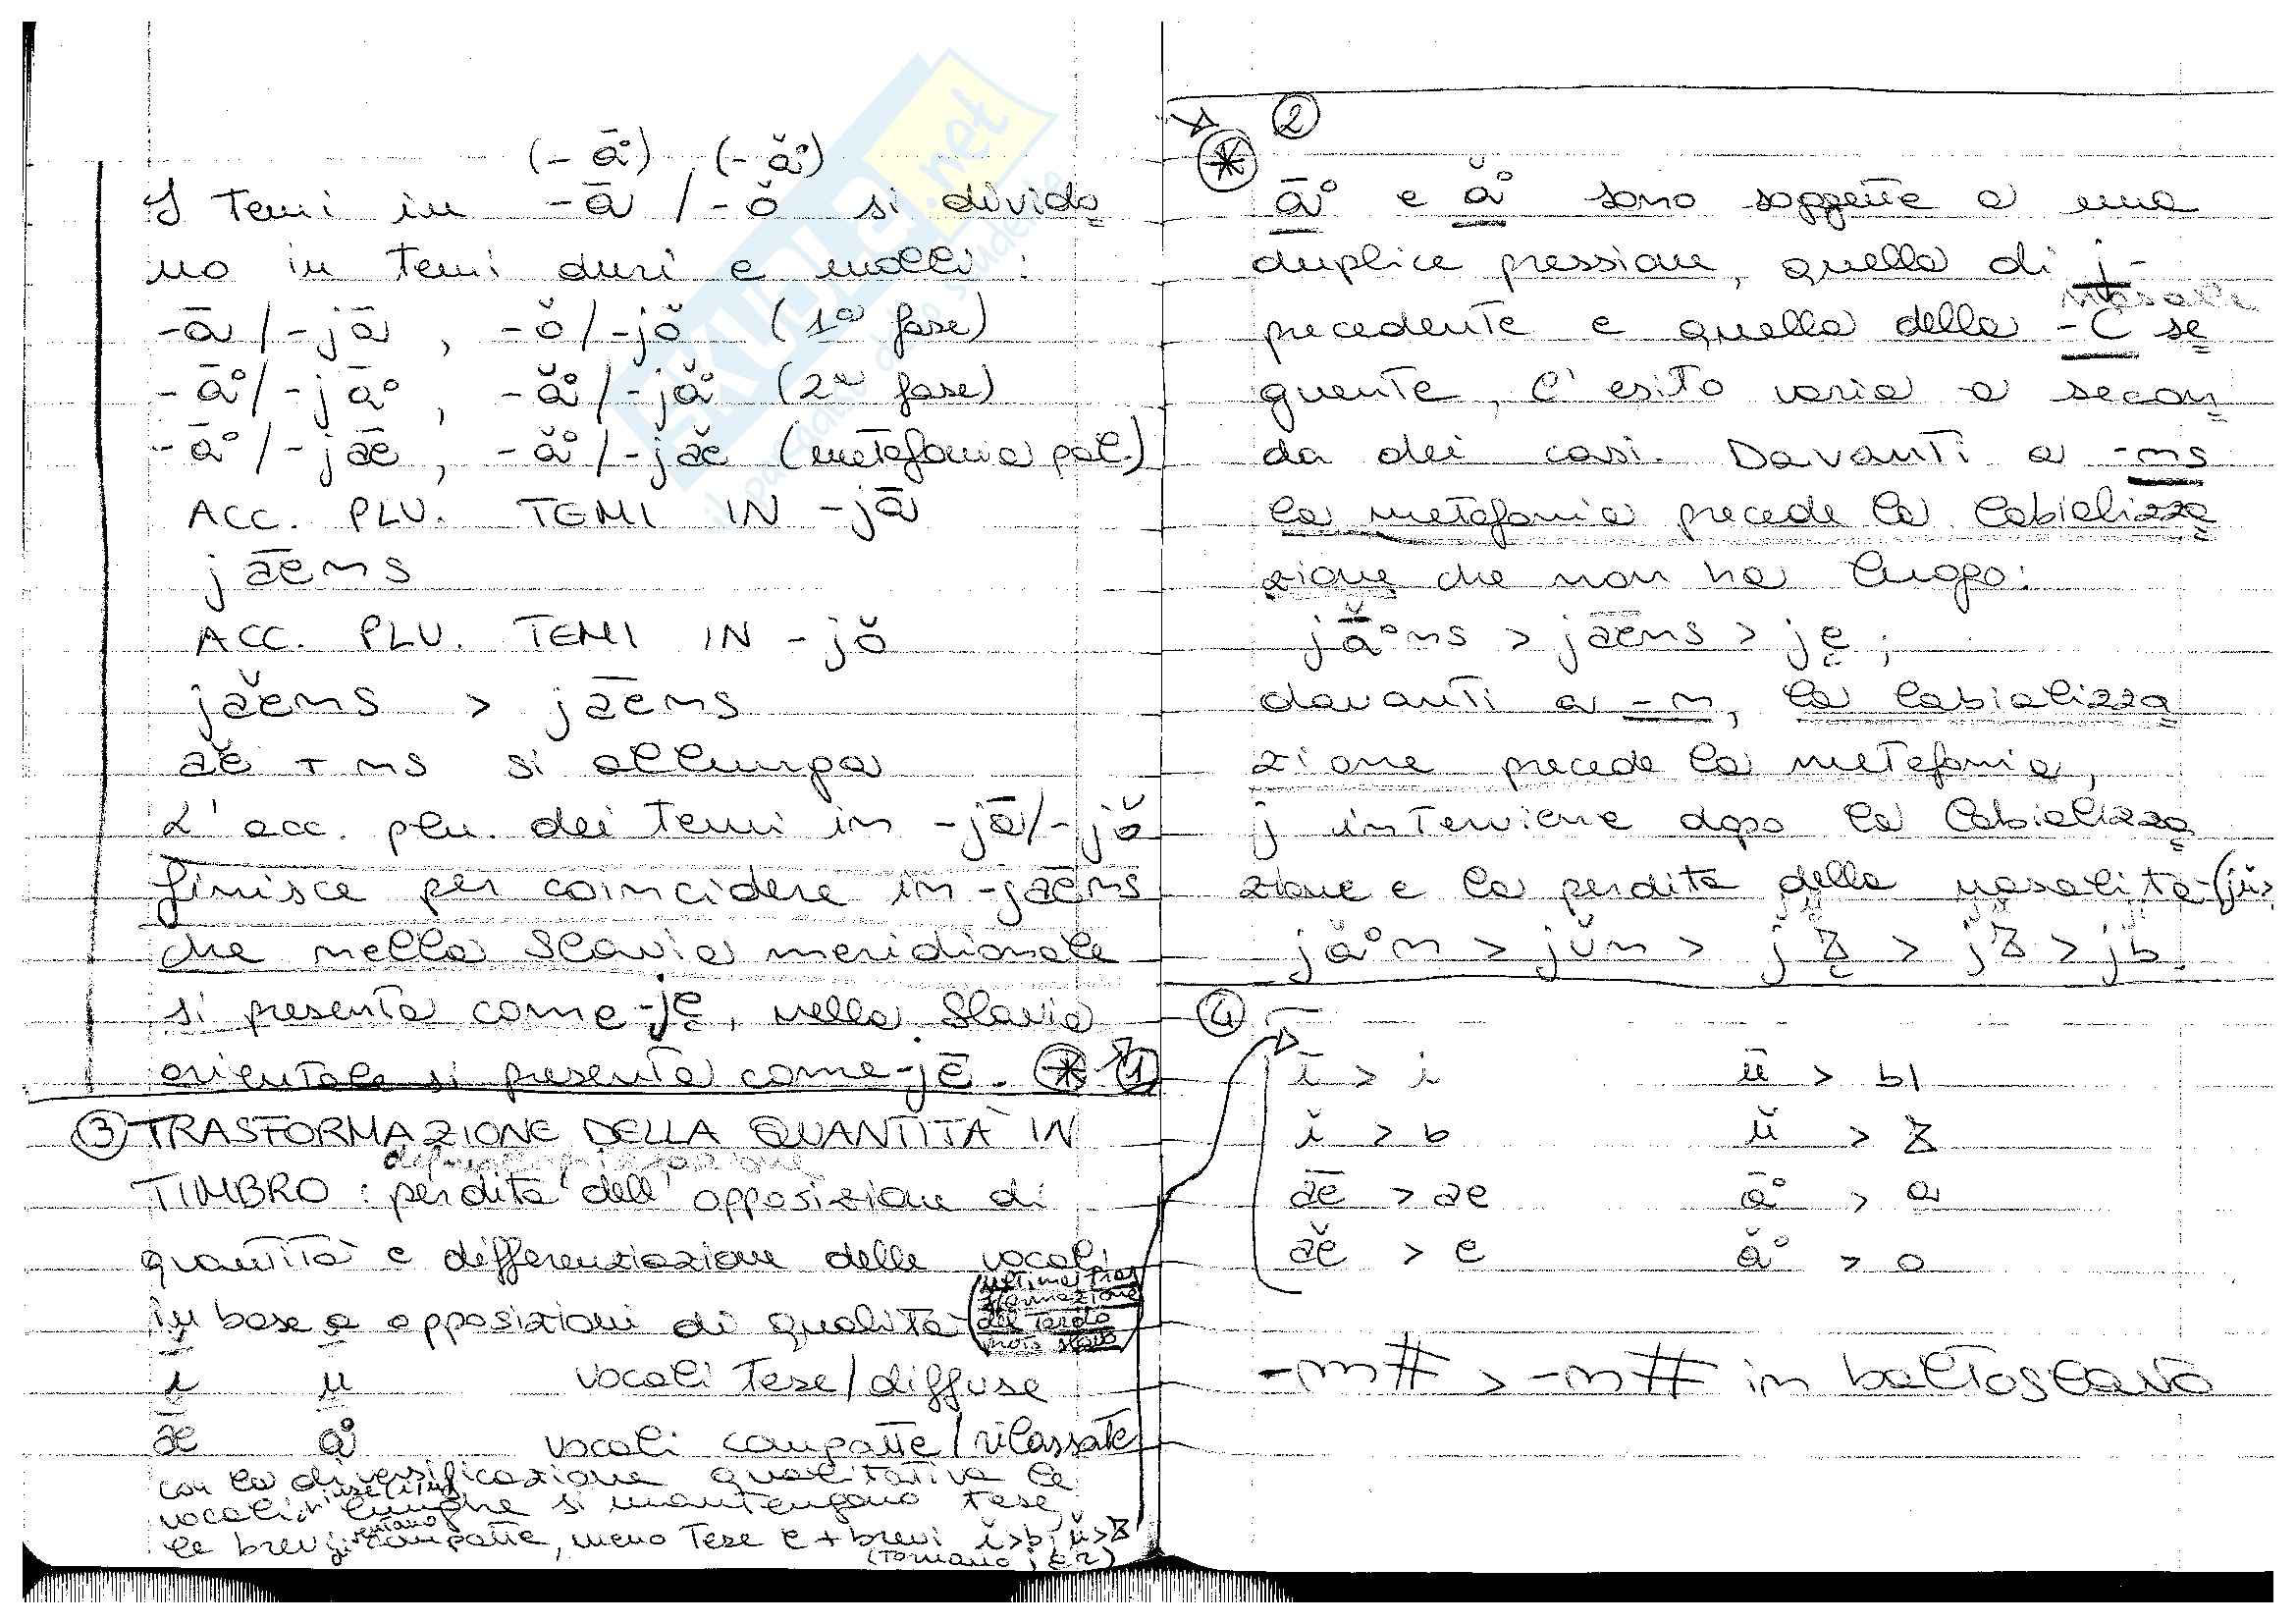 (-ā°) (-ă°)
I temi in -ā / -ŏ si divido
no in temi duri e molli:
-ā / -jā, -ŏ / -jŏ (1ª fase)
-ā° / -jā°, -ă° / -jă° (2ª fase)
-ā° / -jāe, -ă° / -jăe (metafonia pal.)
ACC. PLU. TEMI IN -jā
jāens
ACC. PLU. TEMI IN -jŏ
jăens > jāens
ăe + ns si allunga
L'acc. plu. dei temi in -jā/-jŏ
finisce per coincidere in -jāens
che nella Slavia meridionale
si presenta come -ję, nella Slavia
orientale si presenta come -jē. * 1
3 TRASFORMAZIONE DELLA QUANTITÀ IN
TIMBRO: perdita dell'opposizione di
quantità e differenziazione delle vocali
in base a opposizioni di qualità
(ultima tras
formazione
del tardo
slavo)
i u vocali tese/diffuse
ae a° vocali compatte/rilassate
con la diversificazione qualitativa le
vocali lunghe si mantengono tese
le brevi compatte, meno tese e + brevi ĭ>ь, ŭ>ъ
2
*
ā° e ă° sono soggette a una
duplice pressione, quella di j-
nasale
precedente e quella della -C se
guente, l'esito varia a secon
da dei casi. Davanti a -ns
la metafonia precede la labializza
zione che non ha luogo:
jā̆°ns > jāens > ję;
davanti a -n, la labializza
zione precede la metafonia,
j interviene dopo la labializza
zione e la perdita della nasalità
jă°n > jŭn > jъ̨ > jъ > jь.
4
ī > i ū > ы
ĭ > ь ŭ > ъ
āe > ae ā° > a
ăe > e ă° > o
-m# > -n# in baltoslavo